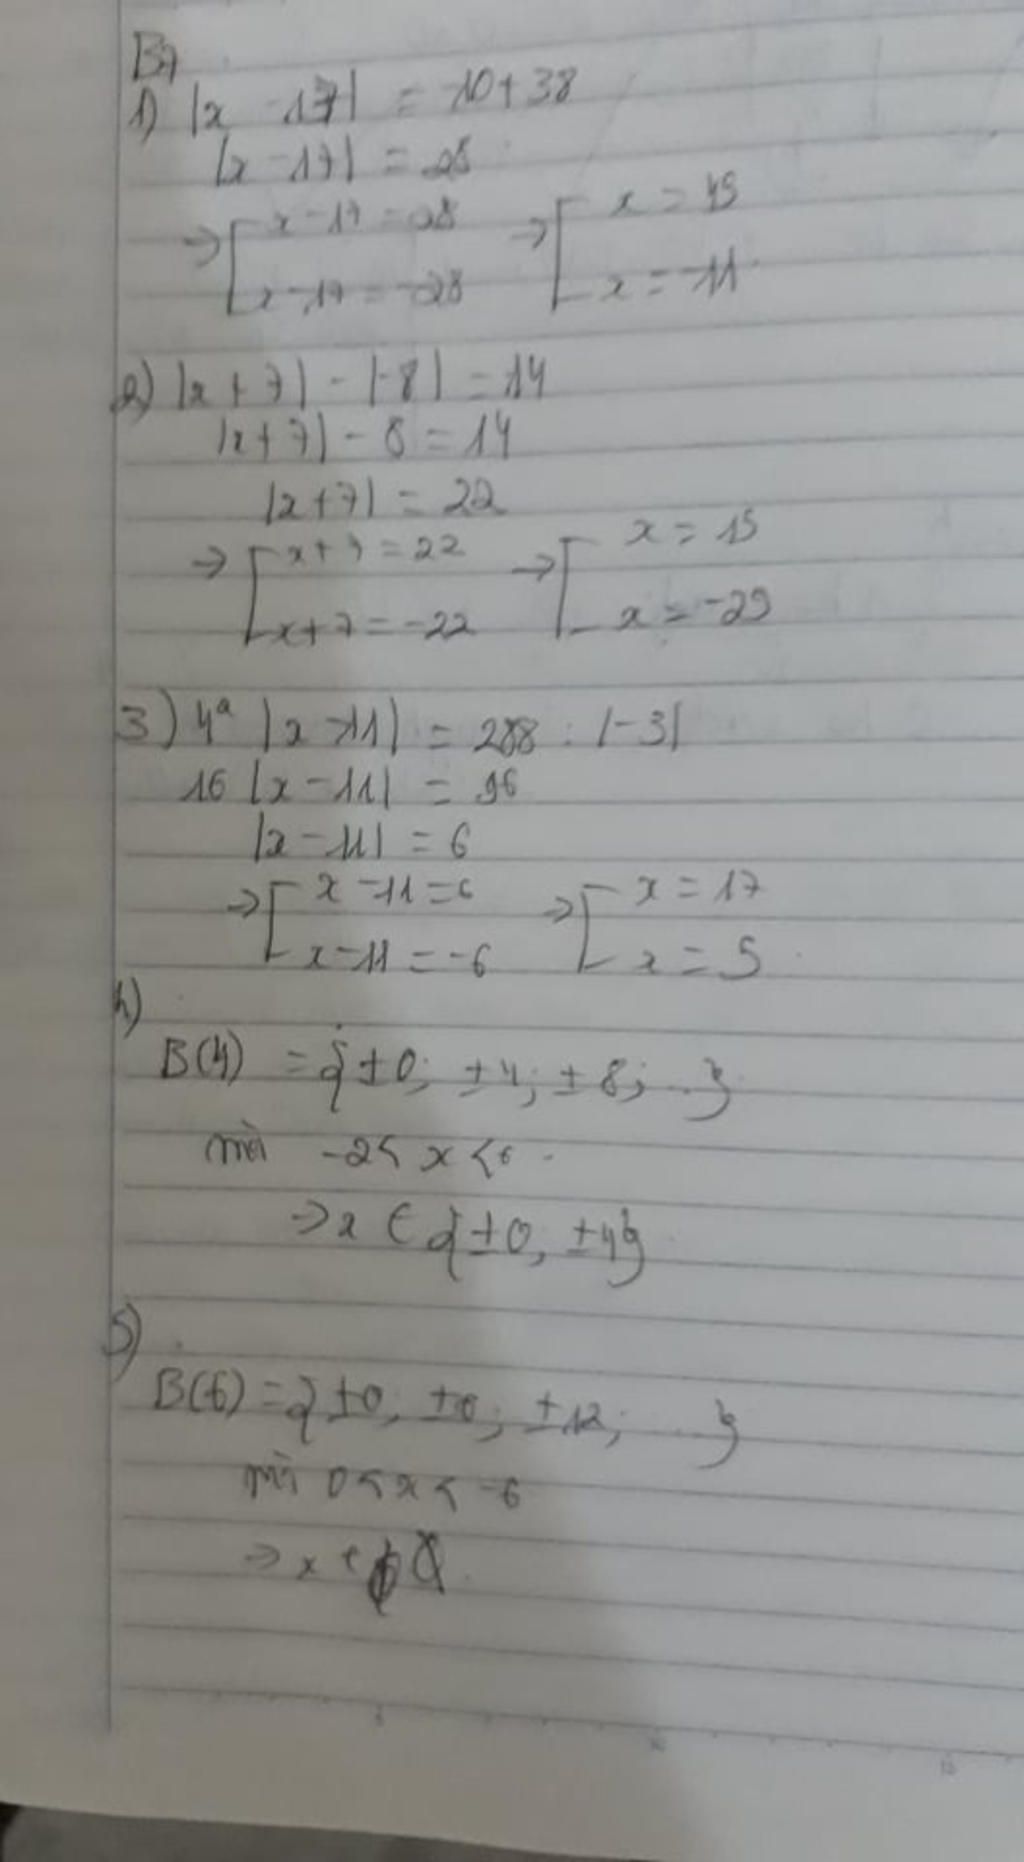 B7
1) |x - 17| = -10 + 38
|x - 17| = 28
=> [ x - 17 = 28 => [ x = 45
x - 17 = -28 x = -11
2) |x + 7| - |-8| = 14
|x + 7| - 8 = 14
|x + 7| = 22
=> [ x + 7 = 22 => [ x = 15
x + 7 = -22 x = -29
3) 4² |x - 11| = 288 : |-3|
16 |x - 11| = 96
|x - 11| = 6
=> [ x - 11 = 6 => [ x = 17
x - 11 = -6 x = 5
4)
B(4) = {±0; ±4; ±8; ...}
mà -2 < x < 6
=> x ∈ {±0, ±4}
5)
B(6) = {±0, ±6; ±12; ...}
mà 0 < x < -6
=> x ∈